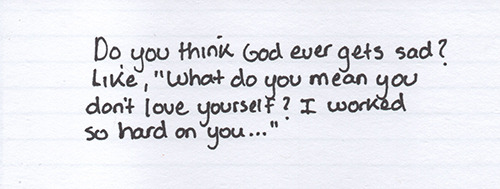 Do you think God ever gets sad?
Like, "What do you mean you
don't love yourself? I worked
so hard on you..."